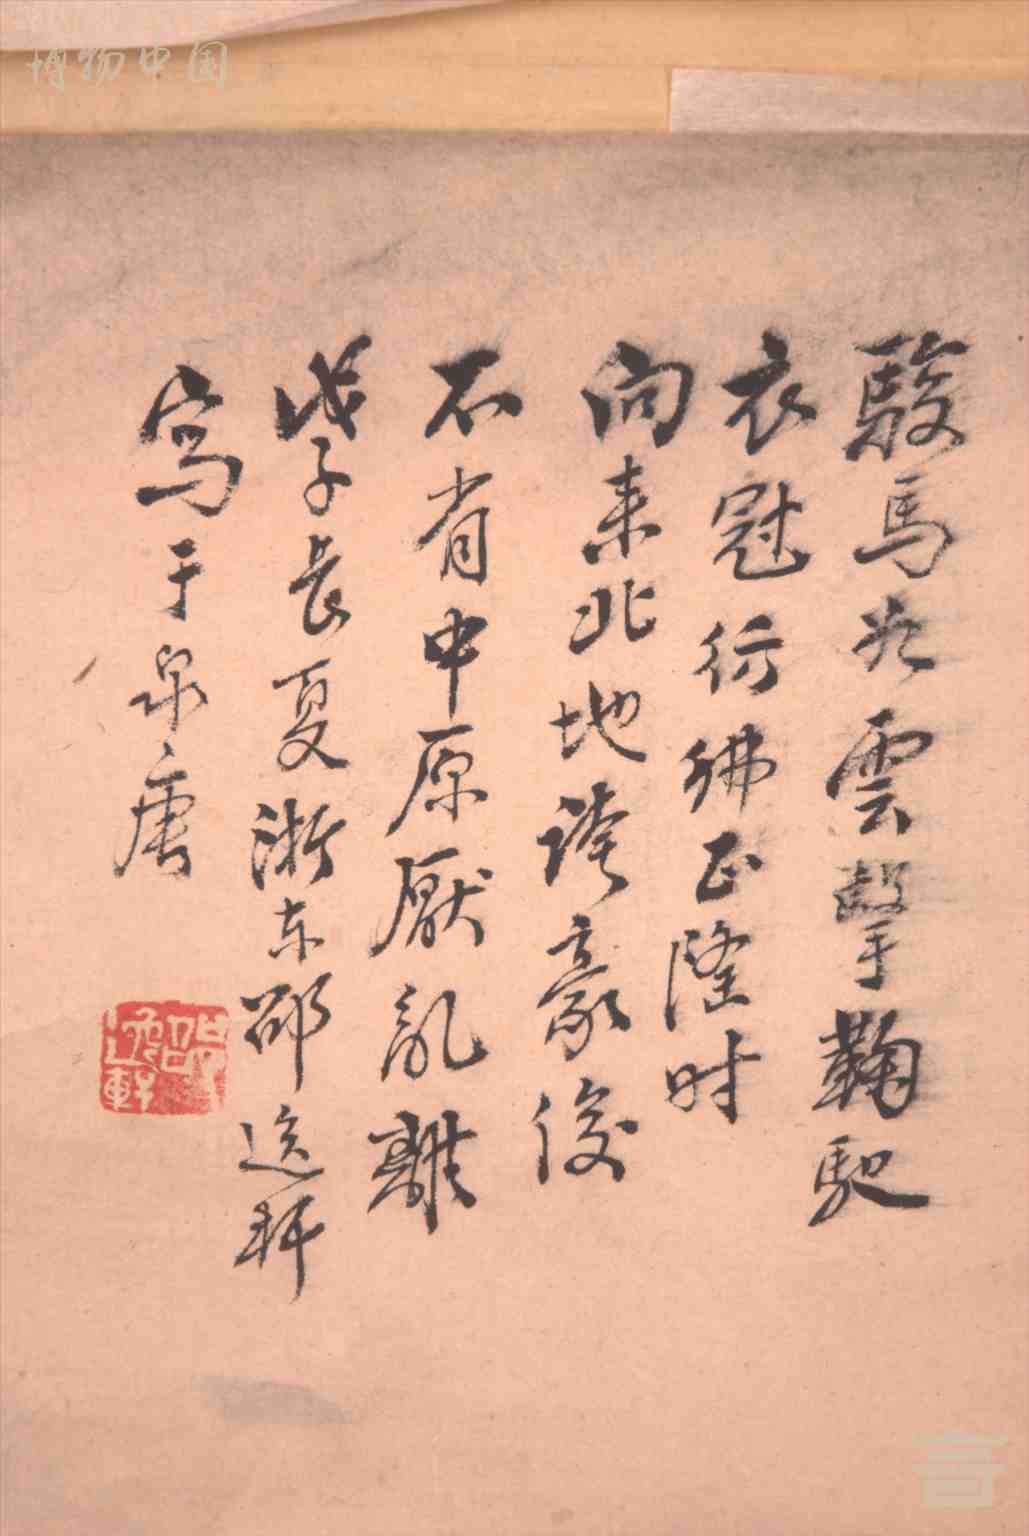 博物中国
駿馬如雲擊鞠馳
衣冠彷彿正隆时
向来北地誇豪俊
不省中原厭亂離
戊子長夏浙东邵逸軒
寫于泉唐
邵逸軒
言